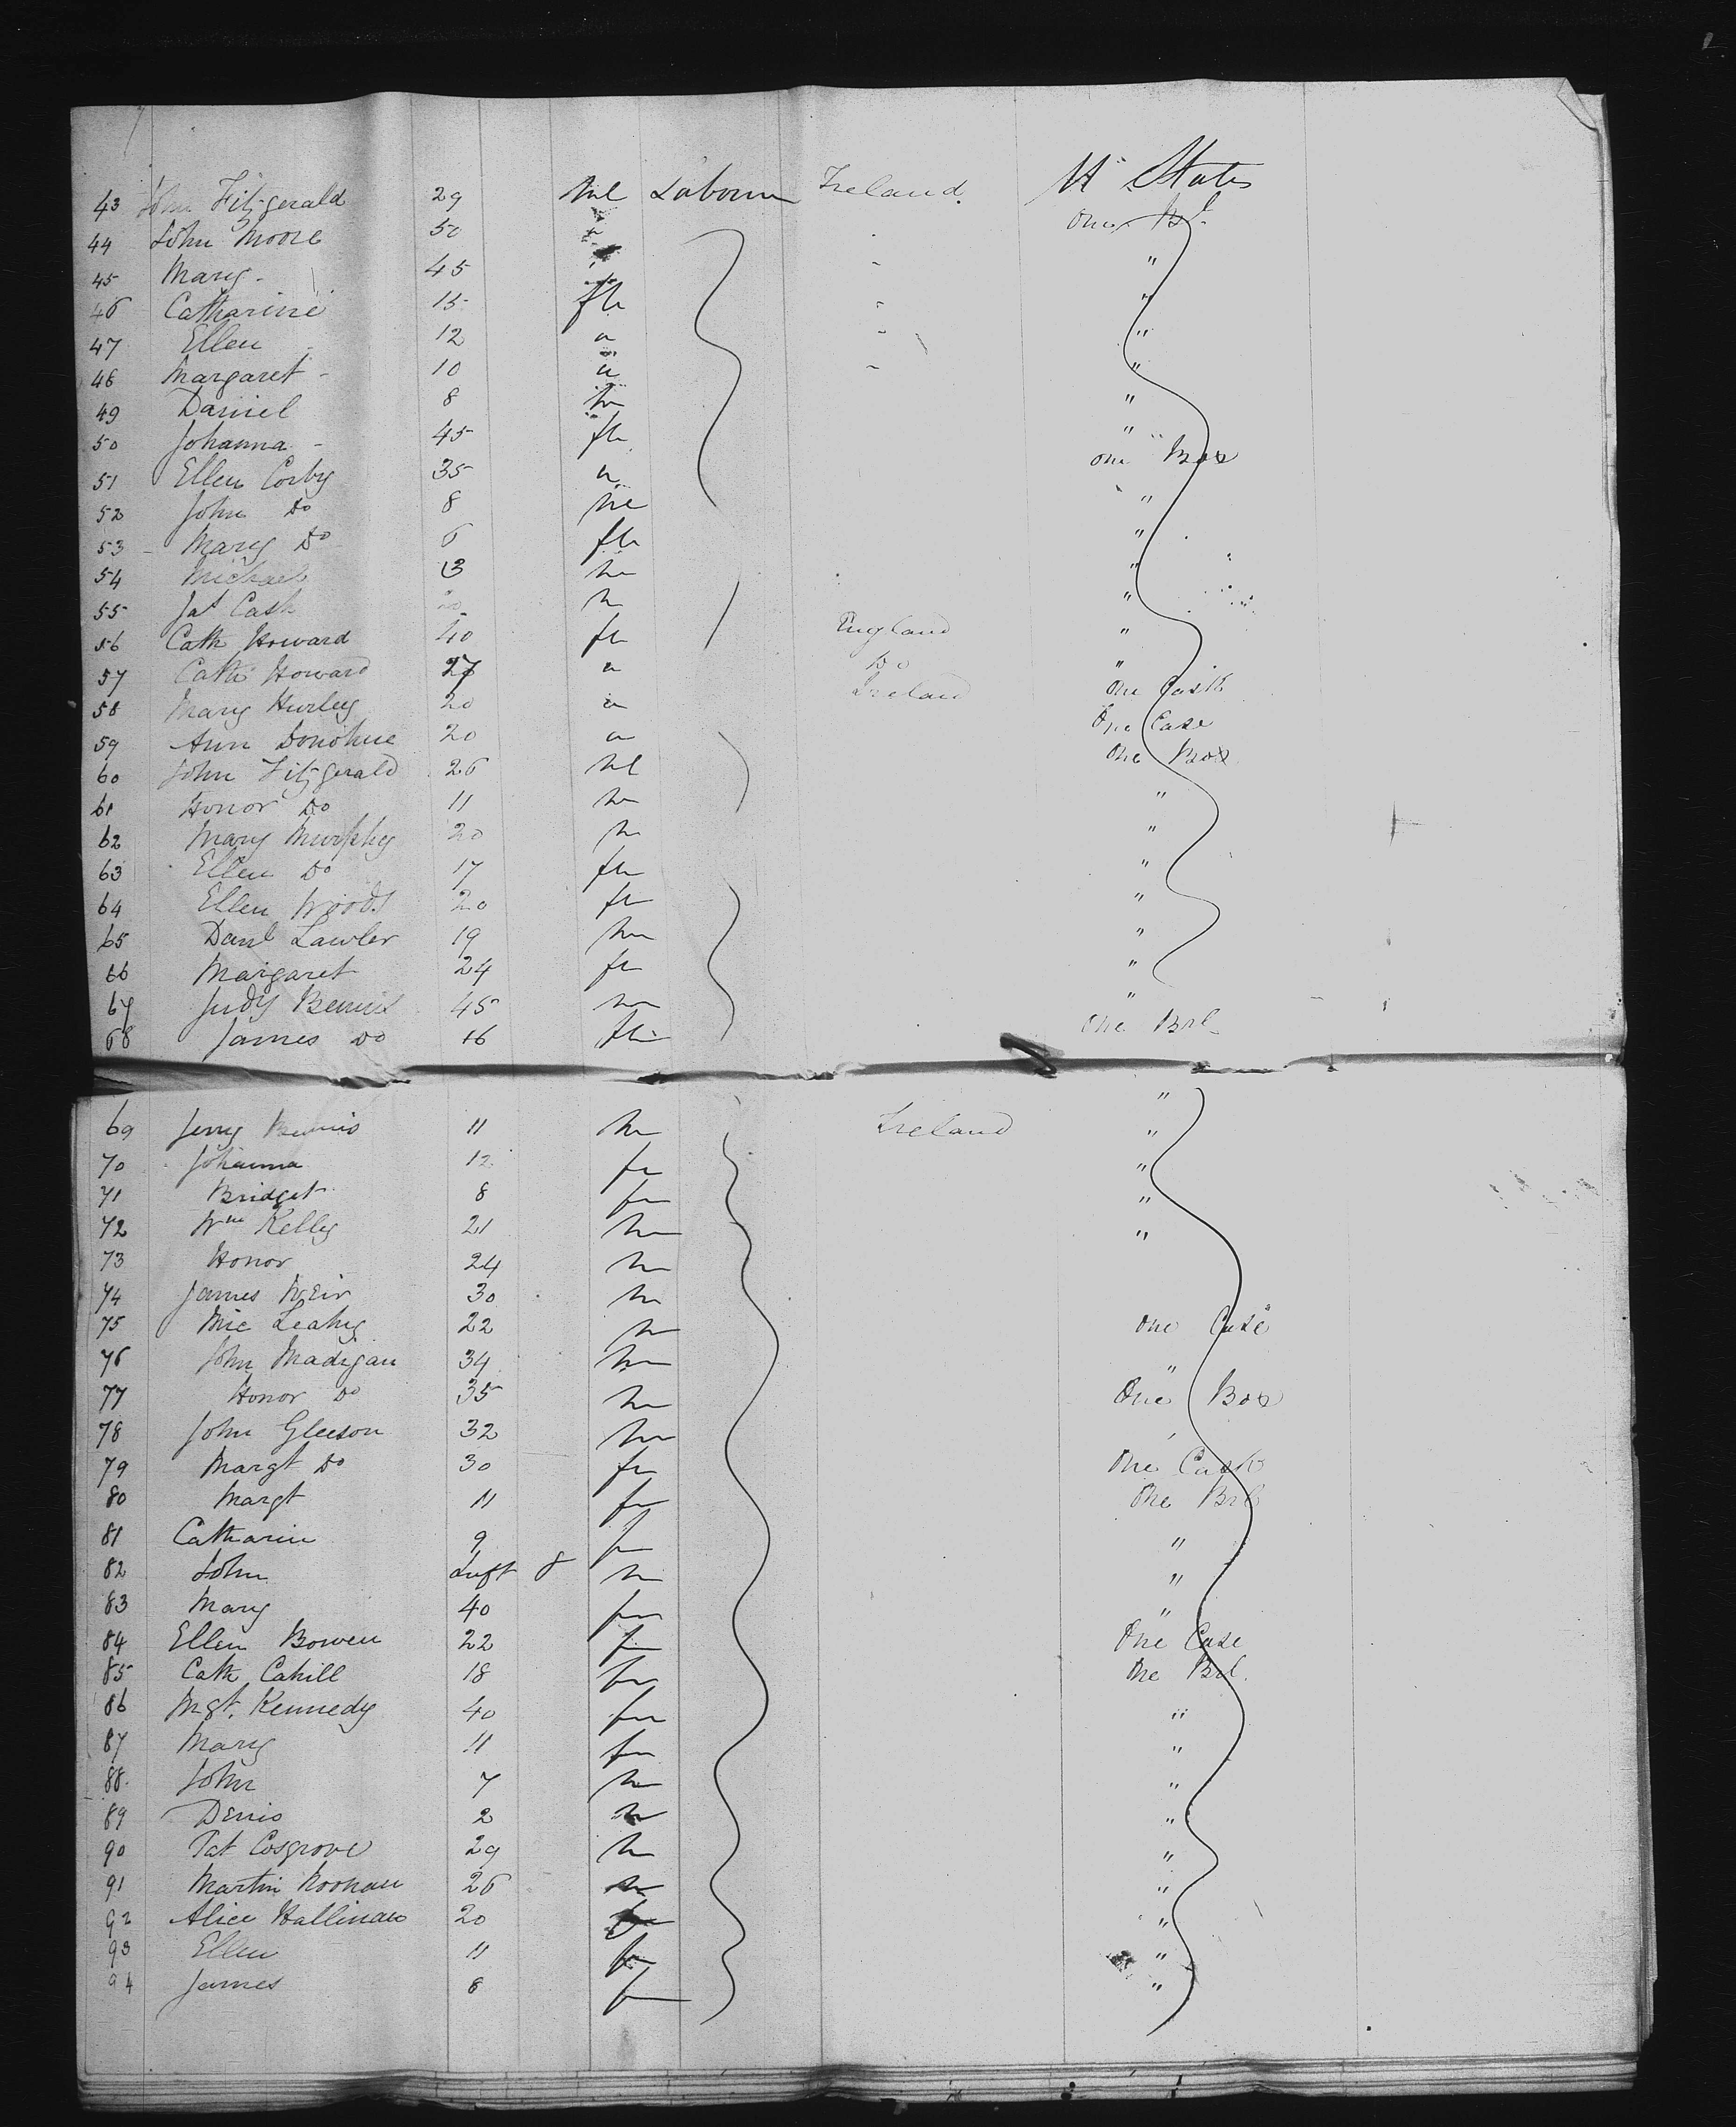 43 John Fitzgerald 29 ml Labourer Ireland. U States
44 John Moore 50 " One
45 Mary - 45 " - "
46 Catharine 15 fe - "
47 Ellen 12 " - "
48 Margaret - 10 " - "
49 Daniel 8 m "
50 Johanna - 45 fe "
51 Ellen Corby 35 " One Box
52 John Do 8 me "
53 Mary Do 6 fe "
54 Michael 13 m "
55 Cash m "
56 Cath Howard 40 fe England "
57 Cath Howard 27 " Do "
58 Mary Hurley 20 " Ireland One Cask
59 Ann Donohue 20 " One Case
60 John Fitzgerald 26 ml One Box
61 Honor Do 11 m "
62 Mary Murphy 20 m "
63 Ellen Do 17 fe "
64 Ellen Woods 20 fe "
65 Danl Lawler 19 m "
66 Margaret 24 fe "
67 Judy 45 m "
68 James Do 16 fe One Brl
"
69 Jerry 11 m Ireland "
70 Johanna 12 fe "
71 Bridget 8 fe "
72 Wm Kelly 21 m "
73 Honor 24 m
74 James Weir 30 m
75 Mic Leahy 22 m One Case
76 John Madigan 34 m "
77 Honor Do 35 m One Box
78 John Gleeson 32 m
79 Margt Do 30 fe One Cask
80 Margt 11 fe One Brl
81 Catharin 9 fe "
82 John Inft 8 m "
83 Mary 40 fe "
84 Ellen Bowen 22 fe One Case
85 Cath Cahill 18 fe One Brl.
86 Mgt. Kennedy 40 fe "
87 Mary 11 fe "
88 John 7 m "
89 Denis 2 m "
90 Pat Cosgrove 29 m "
91 Martin Noonan 26 m "
92 Alice Hallinan 20 fe "
93 Ellen 11 fe "
94 James 8 fe "